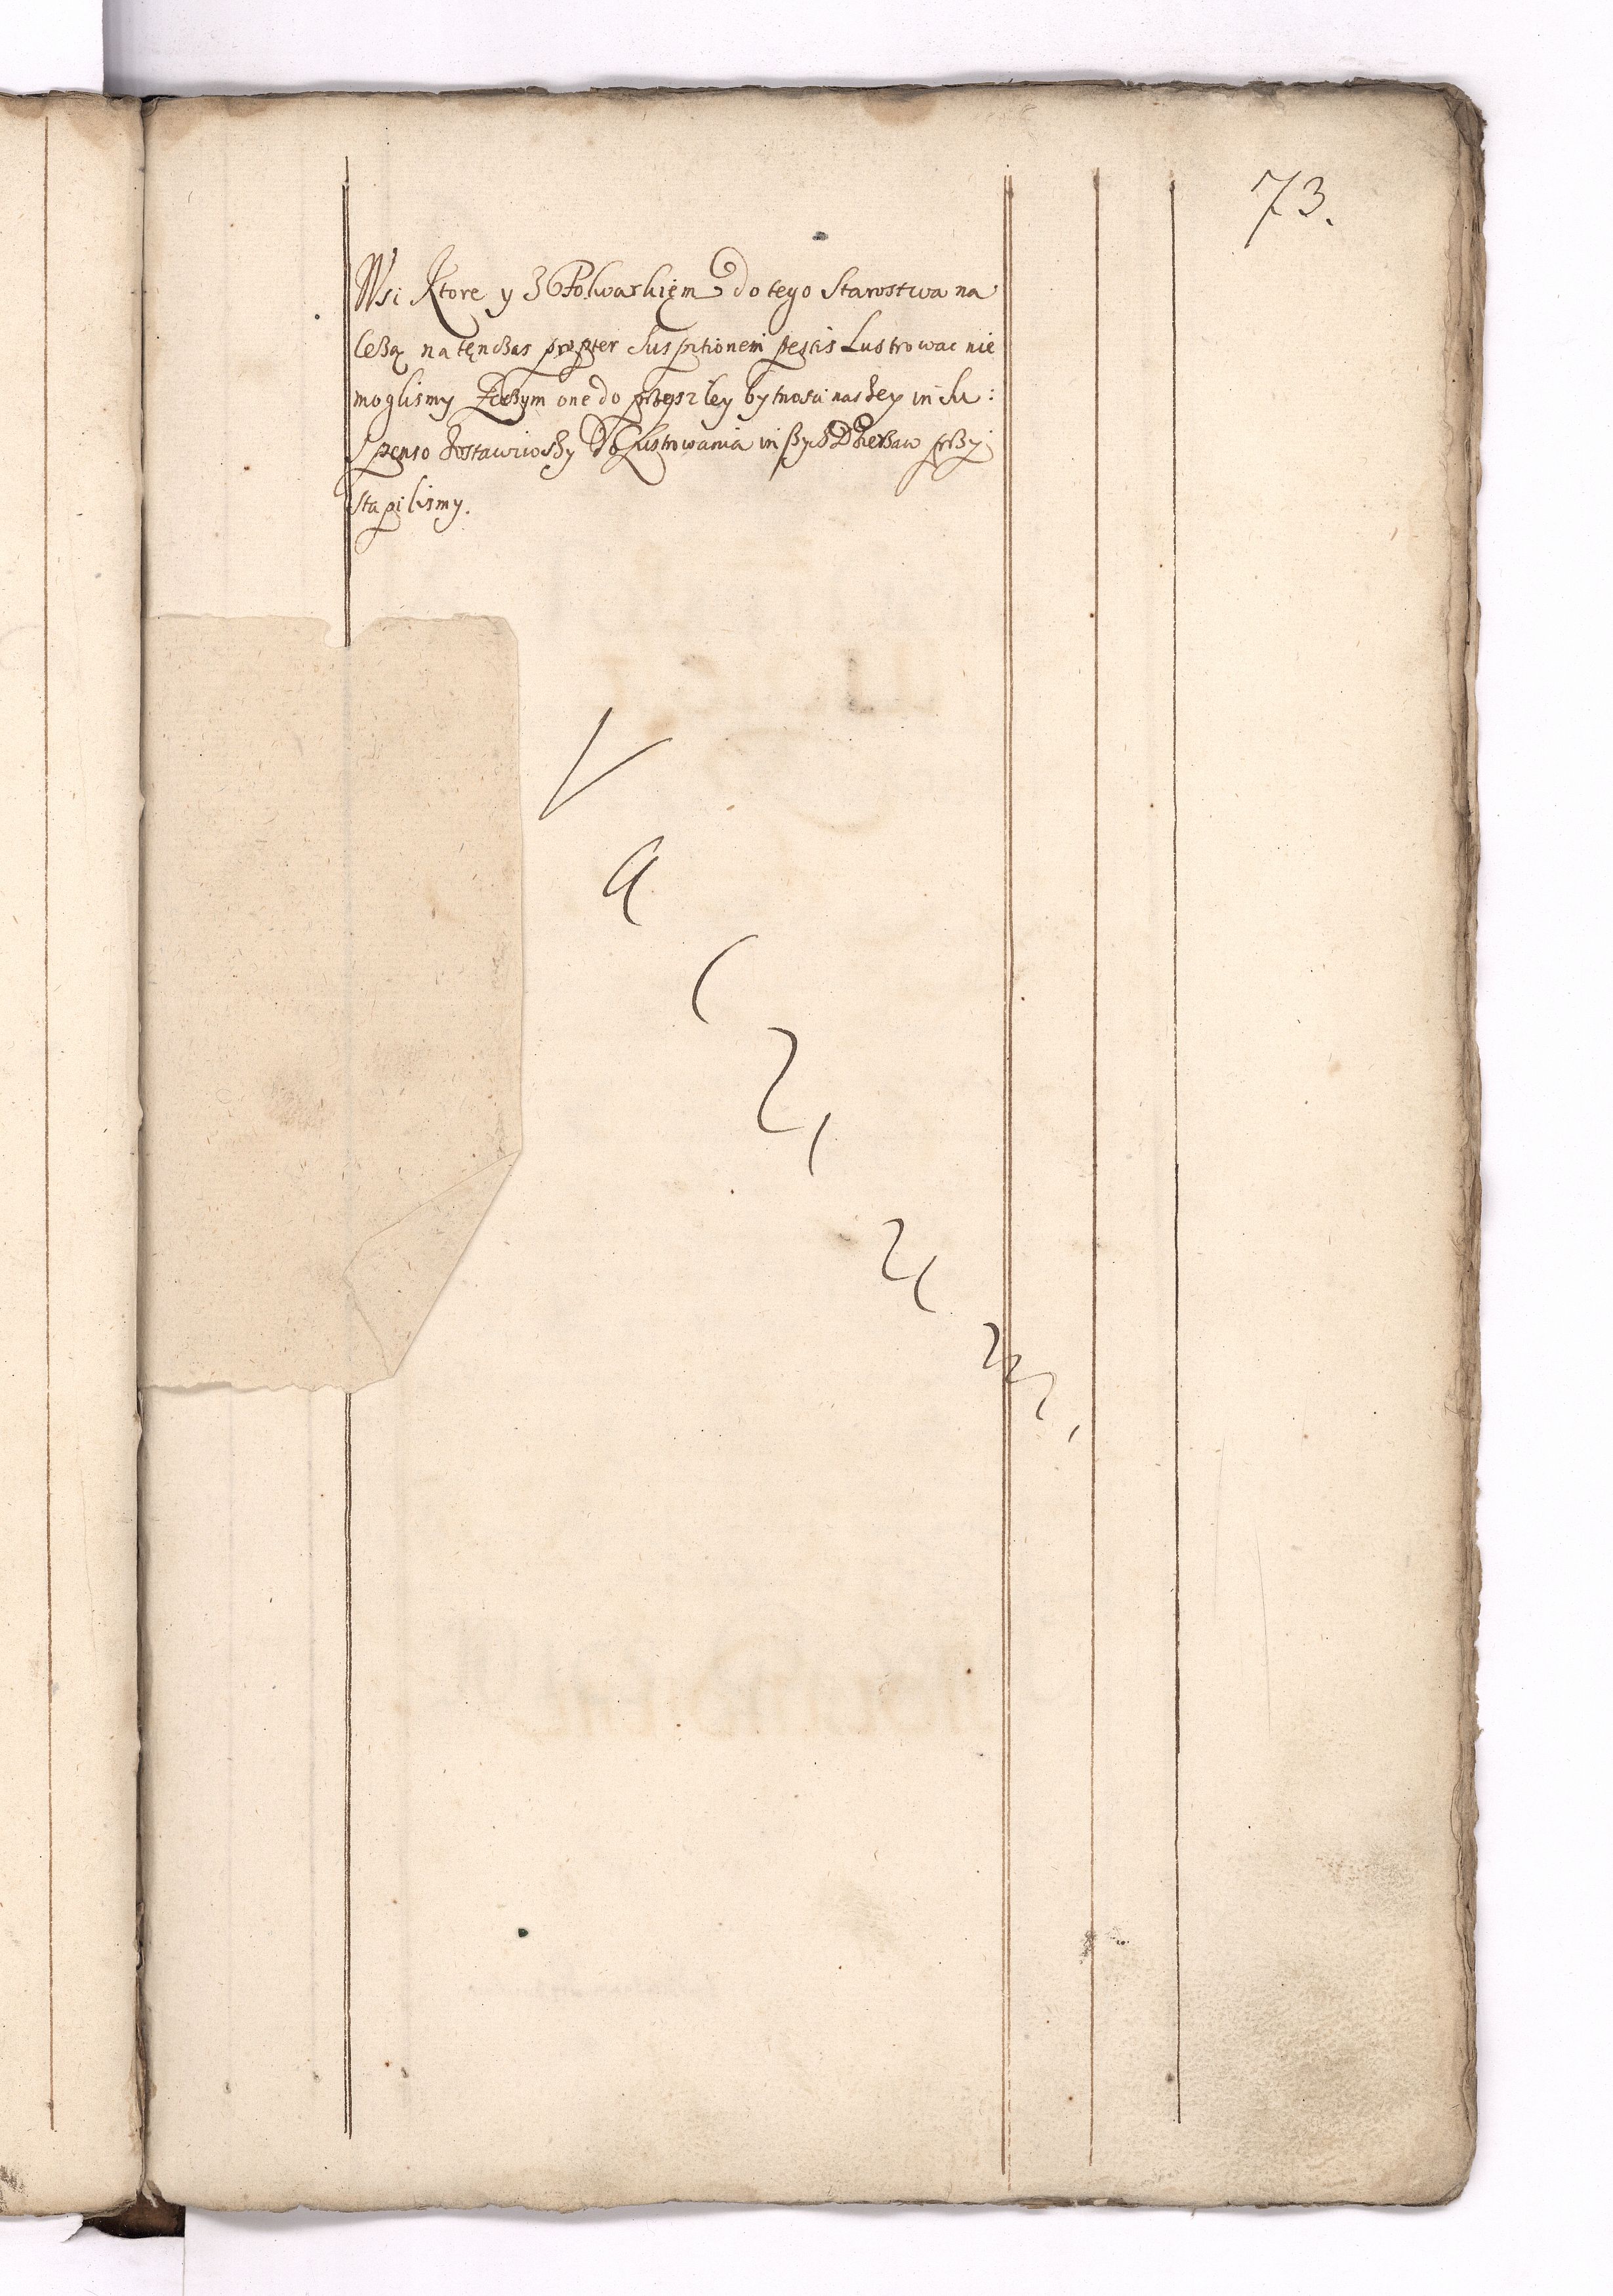 73.
Wsi Ktore y z Folwarkięm do tego Starostwa na
leżą na tęnczas propter Suspitionem pestis Lustrowac nie
moglismy Zaczym one do przyszley bytnosci naszey in Su:
spenso zostawiwszy do Lustrowania inszych Dzierżaw przy
stąpilismy.
V
a
c